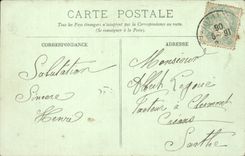 CARTE POSTALE
Tous les Pays étrangers n'acceptent pas la Correspondance au recto.
(Se renseigner à la Poste)
CORRESPONDANCE
ADRESSE
Salutation
Sincère
Henri
Monsieur
Albert
à Clermont
Créans
Sarthe